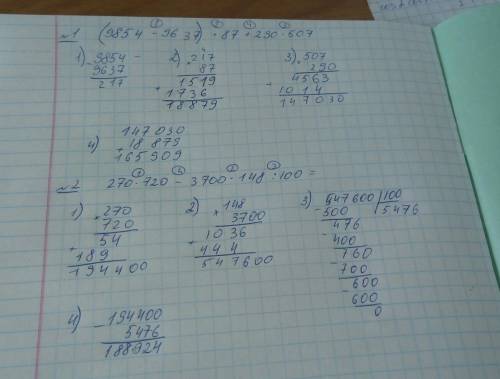 №1 (9854 - 9637) · 87 + 290 · 507
1) 9854 - 2) 217 3) 507
9637 87 290
217 1519 4563
1736 1014
18879 147030
4) 147030
+ 18879
165909
№2 270 · 720 - 3700 · 148 : 100 =
1) 270 2) 148 3) 547600 | 100
720 3700 - 500 | 5476
54 1036 476
+ 189 + 444 - 400
194400 547600 760
- 700
600
- 600
0
4) - 194400
5476
188924